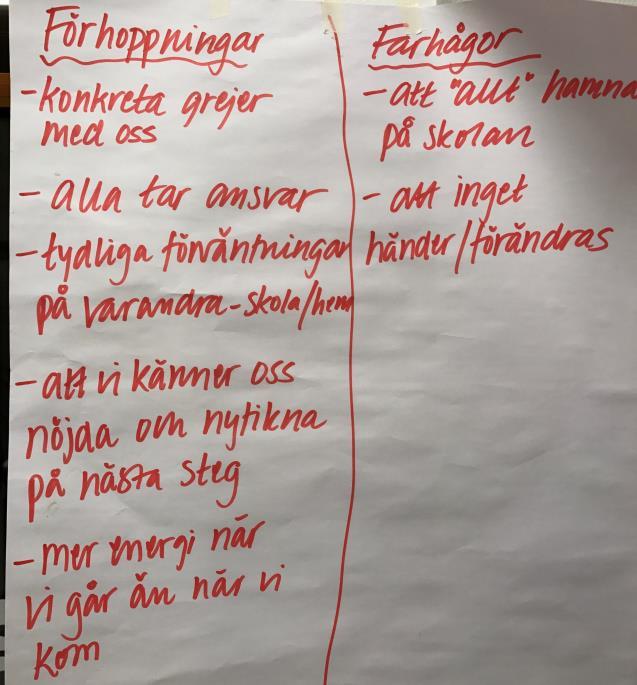 Förhoppningar
- konkreta grejer
med oss
- alla tar ansvar
- tydliga förväntningar
på varandra - skola/hem
- att vi känner oss
nöjda om nyfikna
på nästa steg
- mer energi när
vi går än när vi
kom
Farhågor
- att "allt" hamna
på skolan
- att inget
händer/förändras